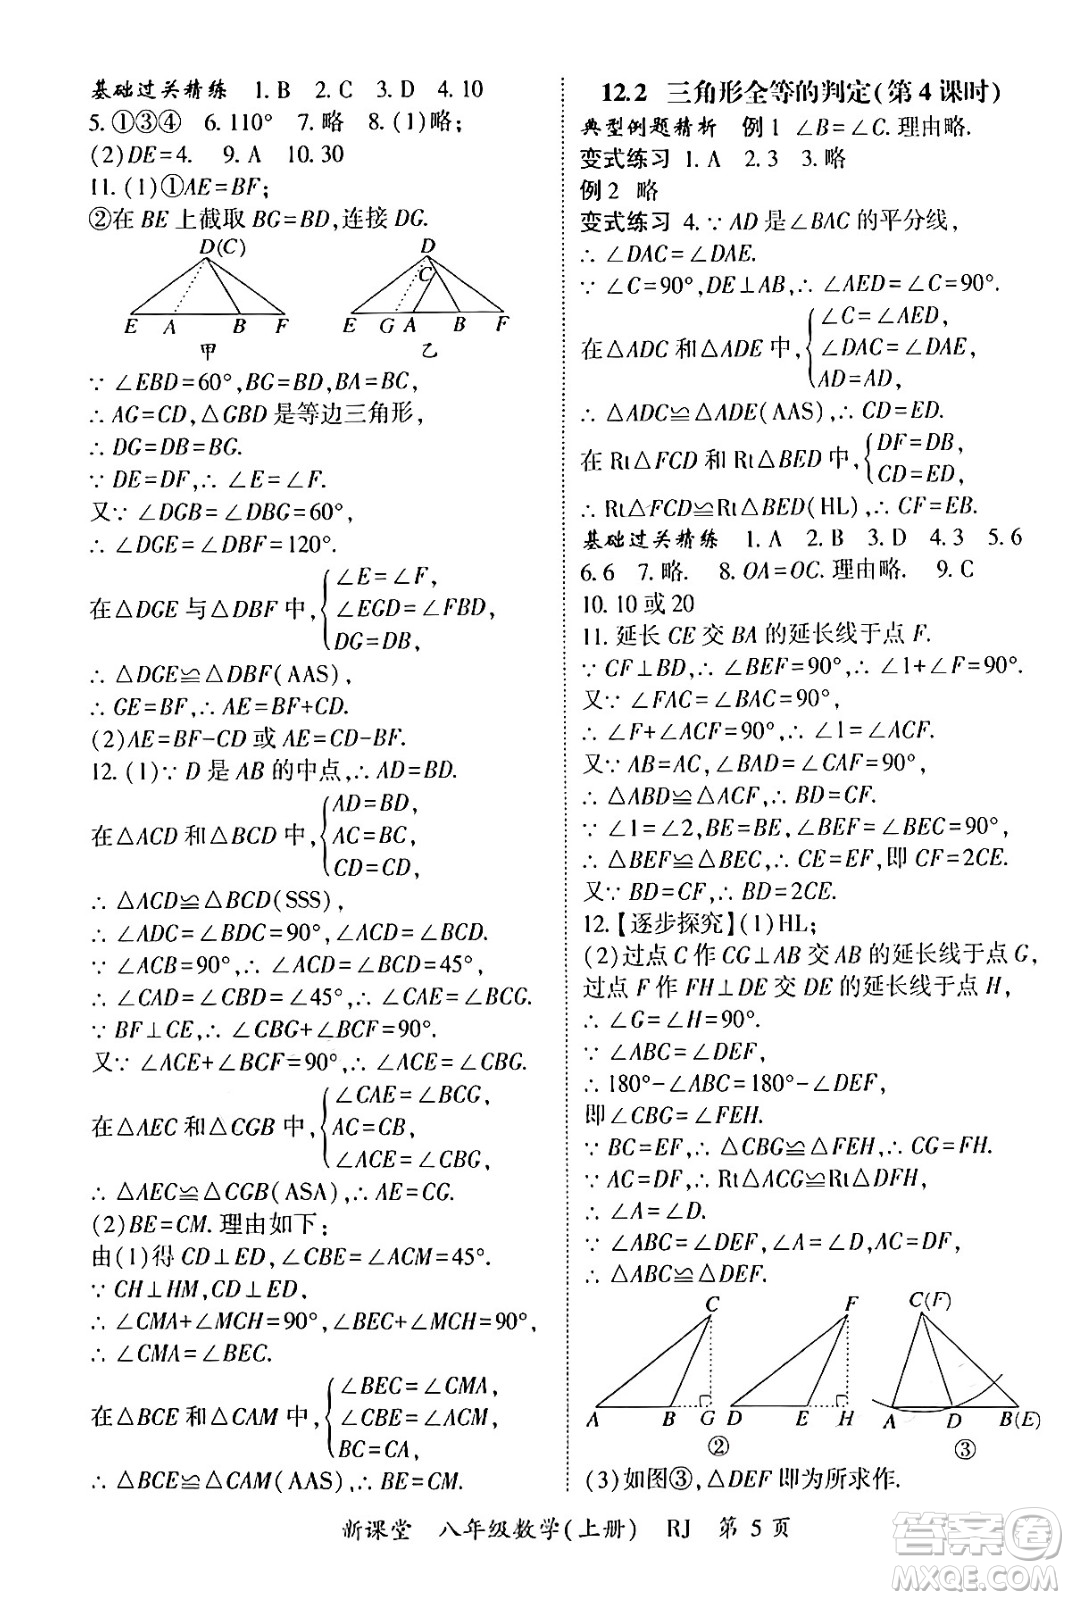 基础过关精练 1. B 2. C 3. A 4. 10
5. ①③④ 6. 110° 7. 略 8. (1)略;
(2)DE=4. 9. A 10. 30
11. (1)①AE=BF;
②在 BE 上截取 BG=BD,连接 DG.
D(C)
E A B F
甲
D
C
E G A B F
乙
∵ ∠EBD=60°,BG=BD,BA=BC,
∴ AG=CD,△GBD 是等边三角形,
∴ DG=DB=BG.
∵ DE=DF,∴ ∠E=∠F.
又∵ ∠DGB=∠DBG=60°,
∴ ∠DGE=∠DBF=120°.
在△DGE 与△DBF 中,
∠E=∠F,
∠EGD=∠FBD,
DG=DB,
∴ △DGE≌△DBF(AAS),
∴ GE=BF,∴ AE=BF+CD.
(2)AE=BF-CD 或 AE=CD-BF.
12. (1)∵ D 是 AB 的中点,∴ AD=BD.
在△ACD 和△BCD 中,
AD=BD,
AC=BC,
CD=CD,
∴ △ACD≌△BCD(SSS),
∴ ∠ADC=∠BDC=90°,
∵ ∠ACB=90°,∴ ∠BCD=45°,
∴ ∠CAD=∠CBD=∠45°,∴ ∠CAE=∠BCG.
∵ BF⊥CE,∴ ∠CBG+∠BCF=90°.
又∵ ∠ACE+∠BCF=90°,∴ ∠ACE=∠CBG.
在△AEC 和△CGB 中,
∠CAE=∠BCG,
AC=CB,
∠ACE=∠CBG,
∴ △AEC≌△CGB(ASA),∴ AE=CG.
(2)BE=CM. 理由如下:
由(1)得 CD⊥ED,∠CBE=∠ACM=45°.
∵ CH⊥HM,CD⊥ED,
∴ ∠CMA+∠MCH=90°,∠BEC+∠MCH=90°,
∴ ∠CMA=∠BEC.
在△BCE 和△CAM 中,
∠BEC=∠CMA,
∠CBE=∠ACM,
BC=CA,
∴ △BCE≌△CAM(AAS),∴ BE=CM.
12.2 三角形全等的判定(第 4 课时)
典型例题精析 例 1 ∠B=∠C. 理由略.
变式练习 1. A 2. 3 3. 略
例 2 略
变式练习 4. ∵ AD 是∠BAC 的平分线,
∴ ∠DAC=∠DAE.
∵ ∠C=90°,DE⊥AB,∴ ∠AED=∠C=90°.
在△ADC 和△ADE 中,
∠C=∠AED,
∠DAC=∠DAE,
AD=AD,
∴ △ADC≌△ADE(AAS),∴ CD=ED.
在 Rt△FCD 和 Rt△BED 中,
DF=DB,
CD=ED,
∴ Rt△FCD≌Rt△BED(HL),∴ CF=EB.
基础过关精练 1. A 2. B 3. D 4. 3 5. 6
6. 6 7. 略. 8. OA=OC. 理由略. 9. C
10. 10 或 20
11. 延长 CE 交 BA 的延长线于点 F.
∵ CF⊥BD,∴ ∠BEF=90°,∴ ∠1+∠F=90°.
又∵ ∠FAC=∠BAC=90°,
∴ ∠F+∠ACF=90°,∴ ∠1=∠ACF.
又∵ AB=AC,∠BAD=∠CAF=90°,
∴ △ABD≌△ACF,∴ BD=CF.
∵ ∠1=∠2,BE=BE,∠BEF=∠BEC=90°,
∴ △BEF≌△BEC,∴ CE=EF,即 CF=2CE.
又∵ BD=CF,∴ BD=2CE.
12.【逐步探究】(1)HL;
(2)过点 C 作 CG⊥AB 交 AB 的延长线于点 G,
过点 F 作 FH⊥DE 交 DE 的延长线于点 H,
∴ ∠G=∠H=90°.
∵ ∠ABC=∠DEF,
∴ 180°-∠ABC=180°-∠DEF,
即∠CBG=∠FEH.
∵ BC=EF,∴ △CBG≌△FEH,∴ CG=FH.
∵ AC=DF,∴ Rt△ACG≌Rt△DFH,
∴ ∠A=∠D.
∵ ∠ABC=∠DEF,∠A=∠D,AC=DF,
∴ △ABC≌△DEF.
C
A B G
F
D E H
②
C(F)
A D B(E)
③
(3)如图③,△DEF 即为所求作.
新课堂 八年级数学(上册) RJ 第 5 页
答案圈
MXQE.COM